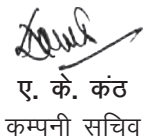 ए. के. कंठ
कम्पनी सचिव